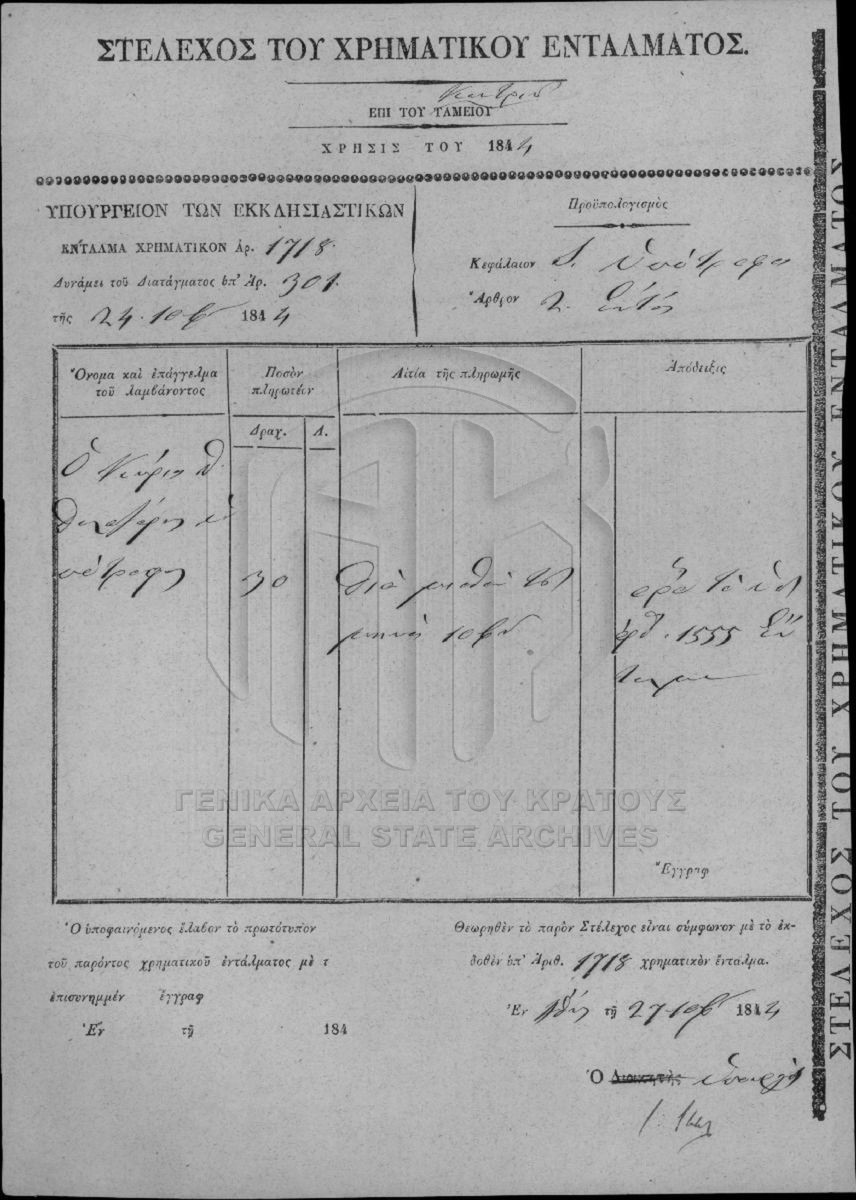 ΣΤΕΛΕΧΟΣ ΤΟΥ ΧΡΗΜΑΤΙΚΟΥ ΕΝΤΑΛΜΑΤΟΣ.
ΕΠΙ ΤΟΥ ΤΑΜΕΙΟΥ
ΧΡΗΣΙΣ ΤΟΥ 1844
ΥΠΟΥΡΓΕΙΟΝ ΤΩΝ ΕΚΚΛΗΣΙΑΣΤΙΚΩΝ
ΕΝΤΑΛΜΑ ΧΡΗΜΑΤΙΚΟΝ Ἀρ. 1718.
Δυνάμει τοῦ Διατάγματος ὑπ' Ἀρ. 301.
τῆς 24. 10β 1844
Προϋπολογισμὸς
Κεφάλαιον
Ἄρθρον 2.
Ὄνομα καὶ ἐπάγγελμα
τοῦ λαμβάνοντος
Ποσὸν
πληρωτέον
Δραχ. Λ.
Αἰτία τῆς πληρωμῆς
Ἀπόδειξις
Ὁ
πότροφος 30 διὰ μισθόν τοῦ
μηνὸς 10β
ὅρα τὸ ὑπ
ἀρθ. 1555 ἔν
ταλμα
Ἔγγραφ
Ὁ ὑποφαινόμενος ἔλαβον τὸ πρωτότυπον
τοῦ παρόντος χρηματικοῦ ἐντάλματος μὲ τ
ἐπισυνημμέν ἔγγραφ
Ἐν τῇ 184
Θεωρηθὲν τὸ παρὸν Στέλεχος εἶναι σύμφωνον μὲ τὸ ἐκ-
δοθὲν ὑπ' Ἀριθ. 1718 χρηματικὸν ἔνταλμα.
Ἐν τῇ 27 10β 1844
Ὁ Διοικητὴς Ὑπουργὸς
ΣΤΕΛΕΧΟΣ ΤΟΥ ΧΡΗΜΑΤΙΚΟΥ ΕΝΤΑΛΜΑΤΟΣ
ΓΕΝΙΚΑ ΑΡΧΕΙΑ ΤΟΥ ΚΡΑΤΟΥΣ
GENERAL STATE ARCHIVES